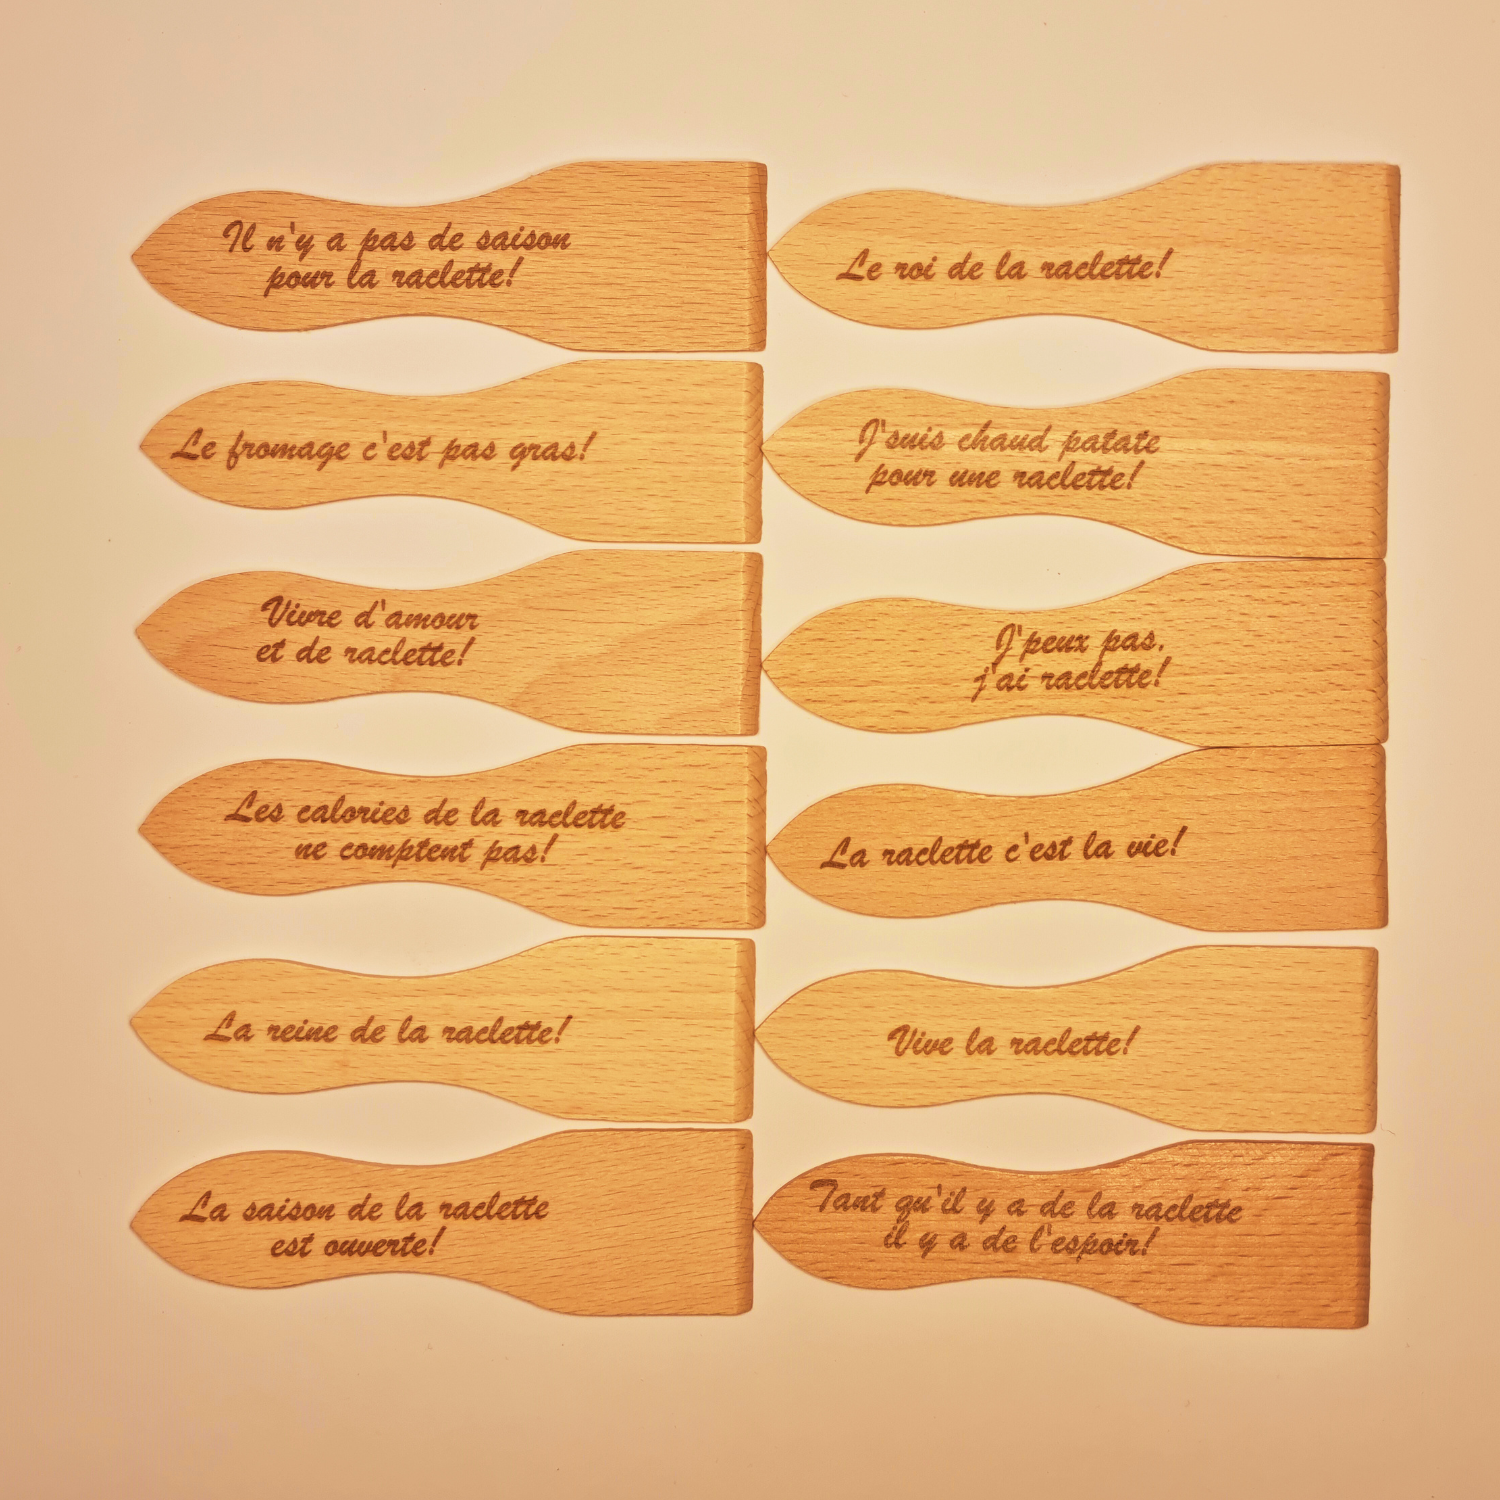 Il n'y a pas de saison
pour la raclette!
Le roi de la raclette!
Le fromage c'est pas gras!
J'suis chaud patate
pour une raclette!
Vivre d'amour
et de raclette!
J'peux pas,
j'ai raclette!
Les calories de la raclette
ne comptent pas!
La raclette c'est la vie!
La reine de la raclette!
Vive la raclette!
La saison de la raclette
est ouverte!
Tant qu'il y a de la raclette
il y a de l'espoir!